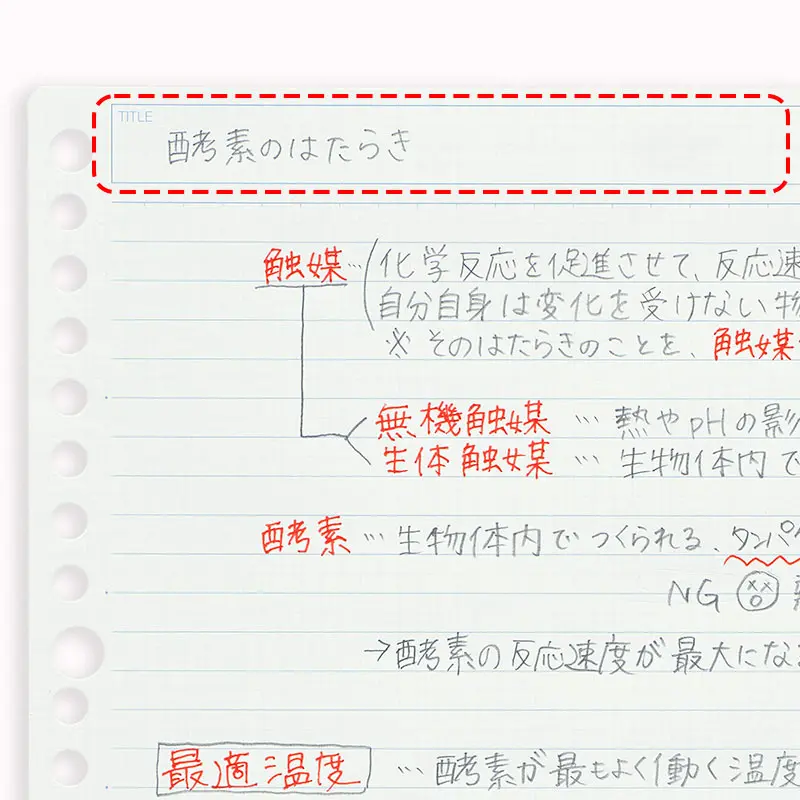 TITLE
酵素のはたらき
触媒…(化学反応を促進させて、反応速
自分自身は変化を受けない物
※ そのはたらきのことを、触媒
無機触媒 … 熱やpHの影
生体触媒 … 生物体内で
酵素 … 生物体内でつくられる、タンパク
NG
→酵素の反応速度が最大になる
最適温度 … 酵素が最もよく働く温度